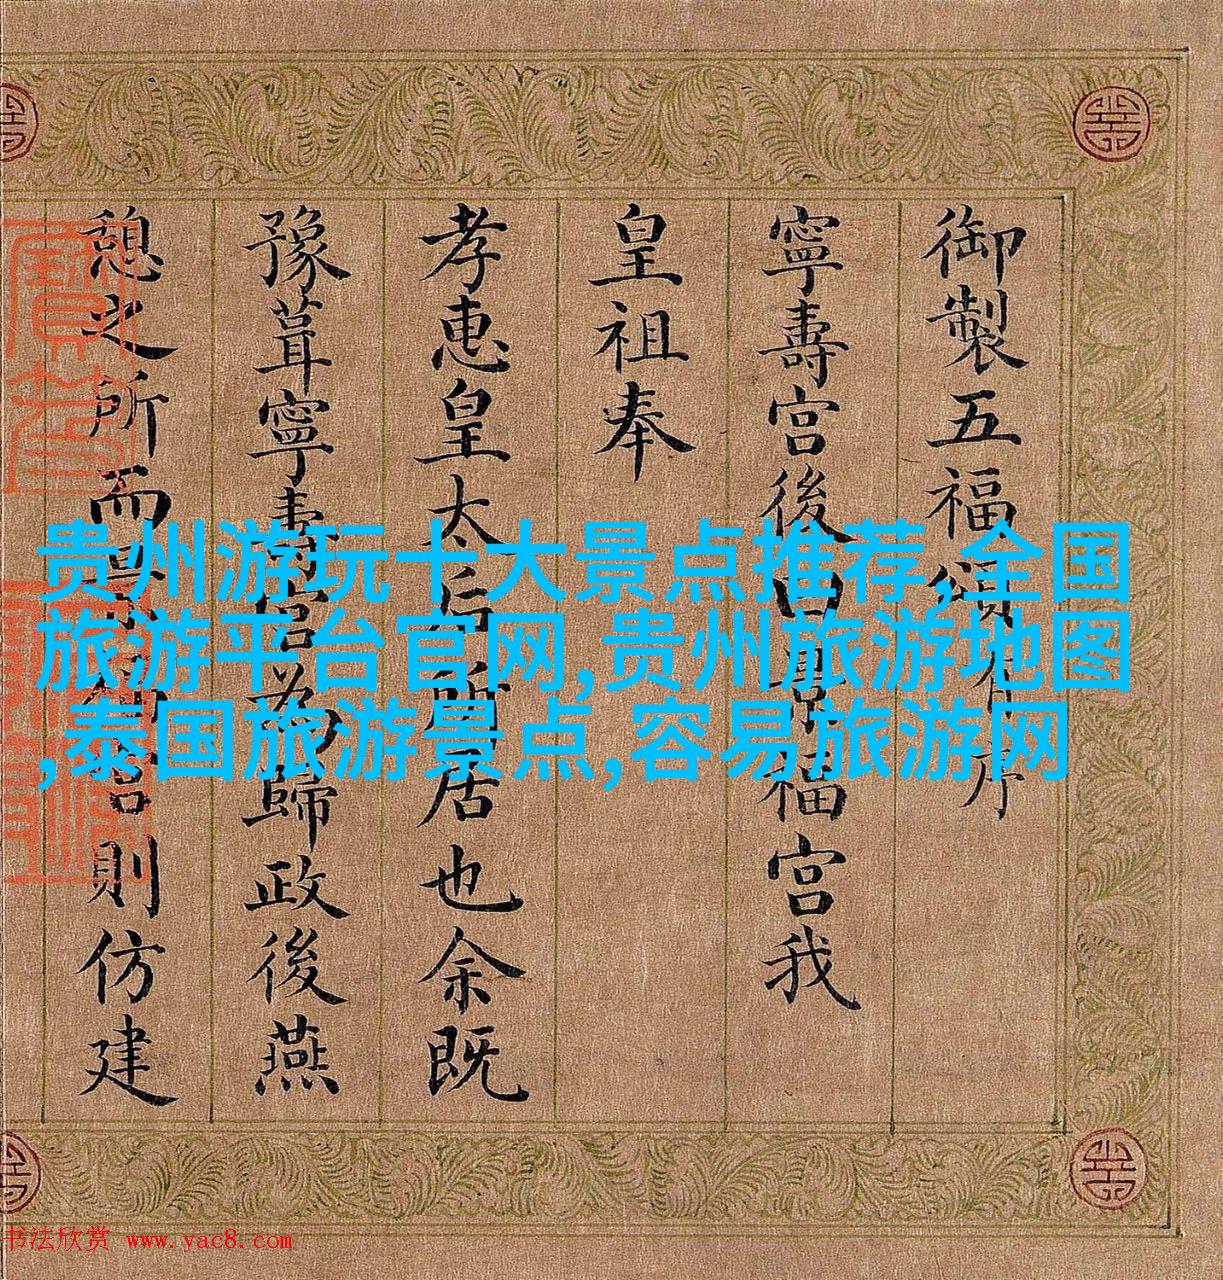 御製五福頌有序
寧壽宮後曰景福宮我
皇祖奉
孝惠皇太后所居也余既
豫葺寧壽宮為歸政後燕
憩之所而景福宮則仿建
贵州游玩十大景点推荐,全国
旅游平台官网,贵州旅游地图
,泰国旅游景点,容易旅游网
书法欣赏 www.yac8.com